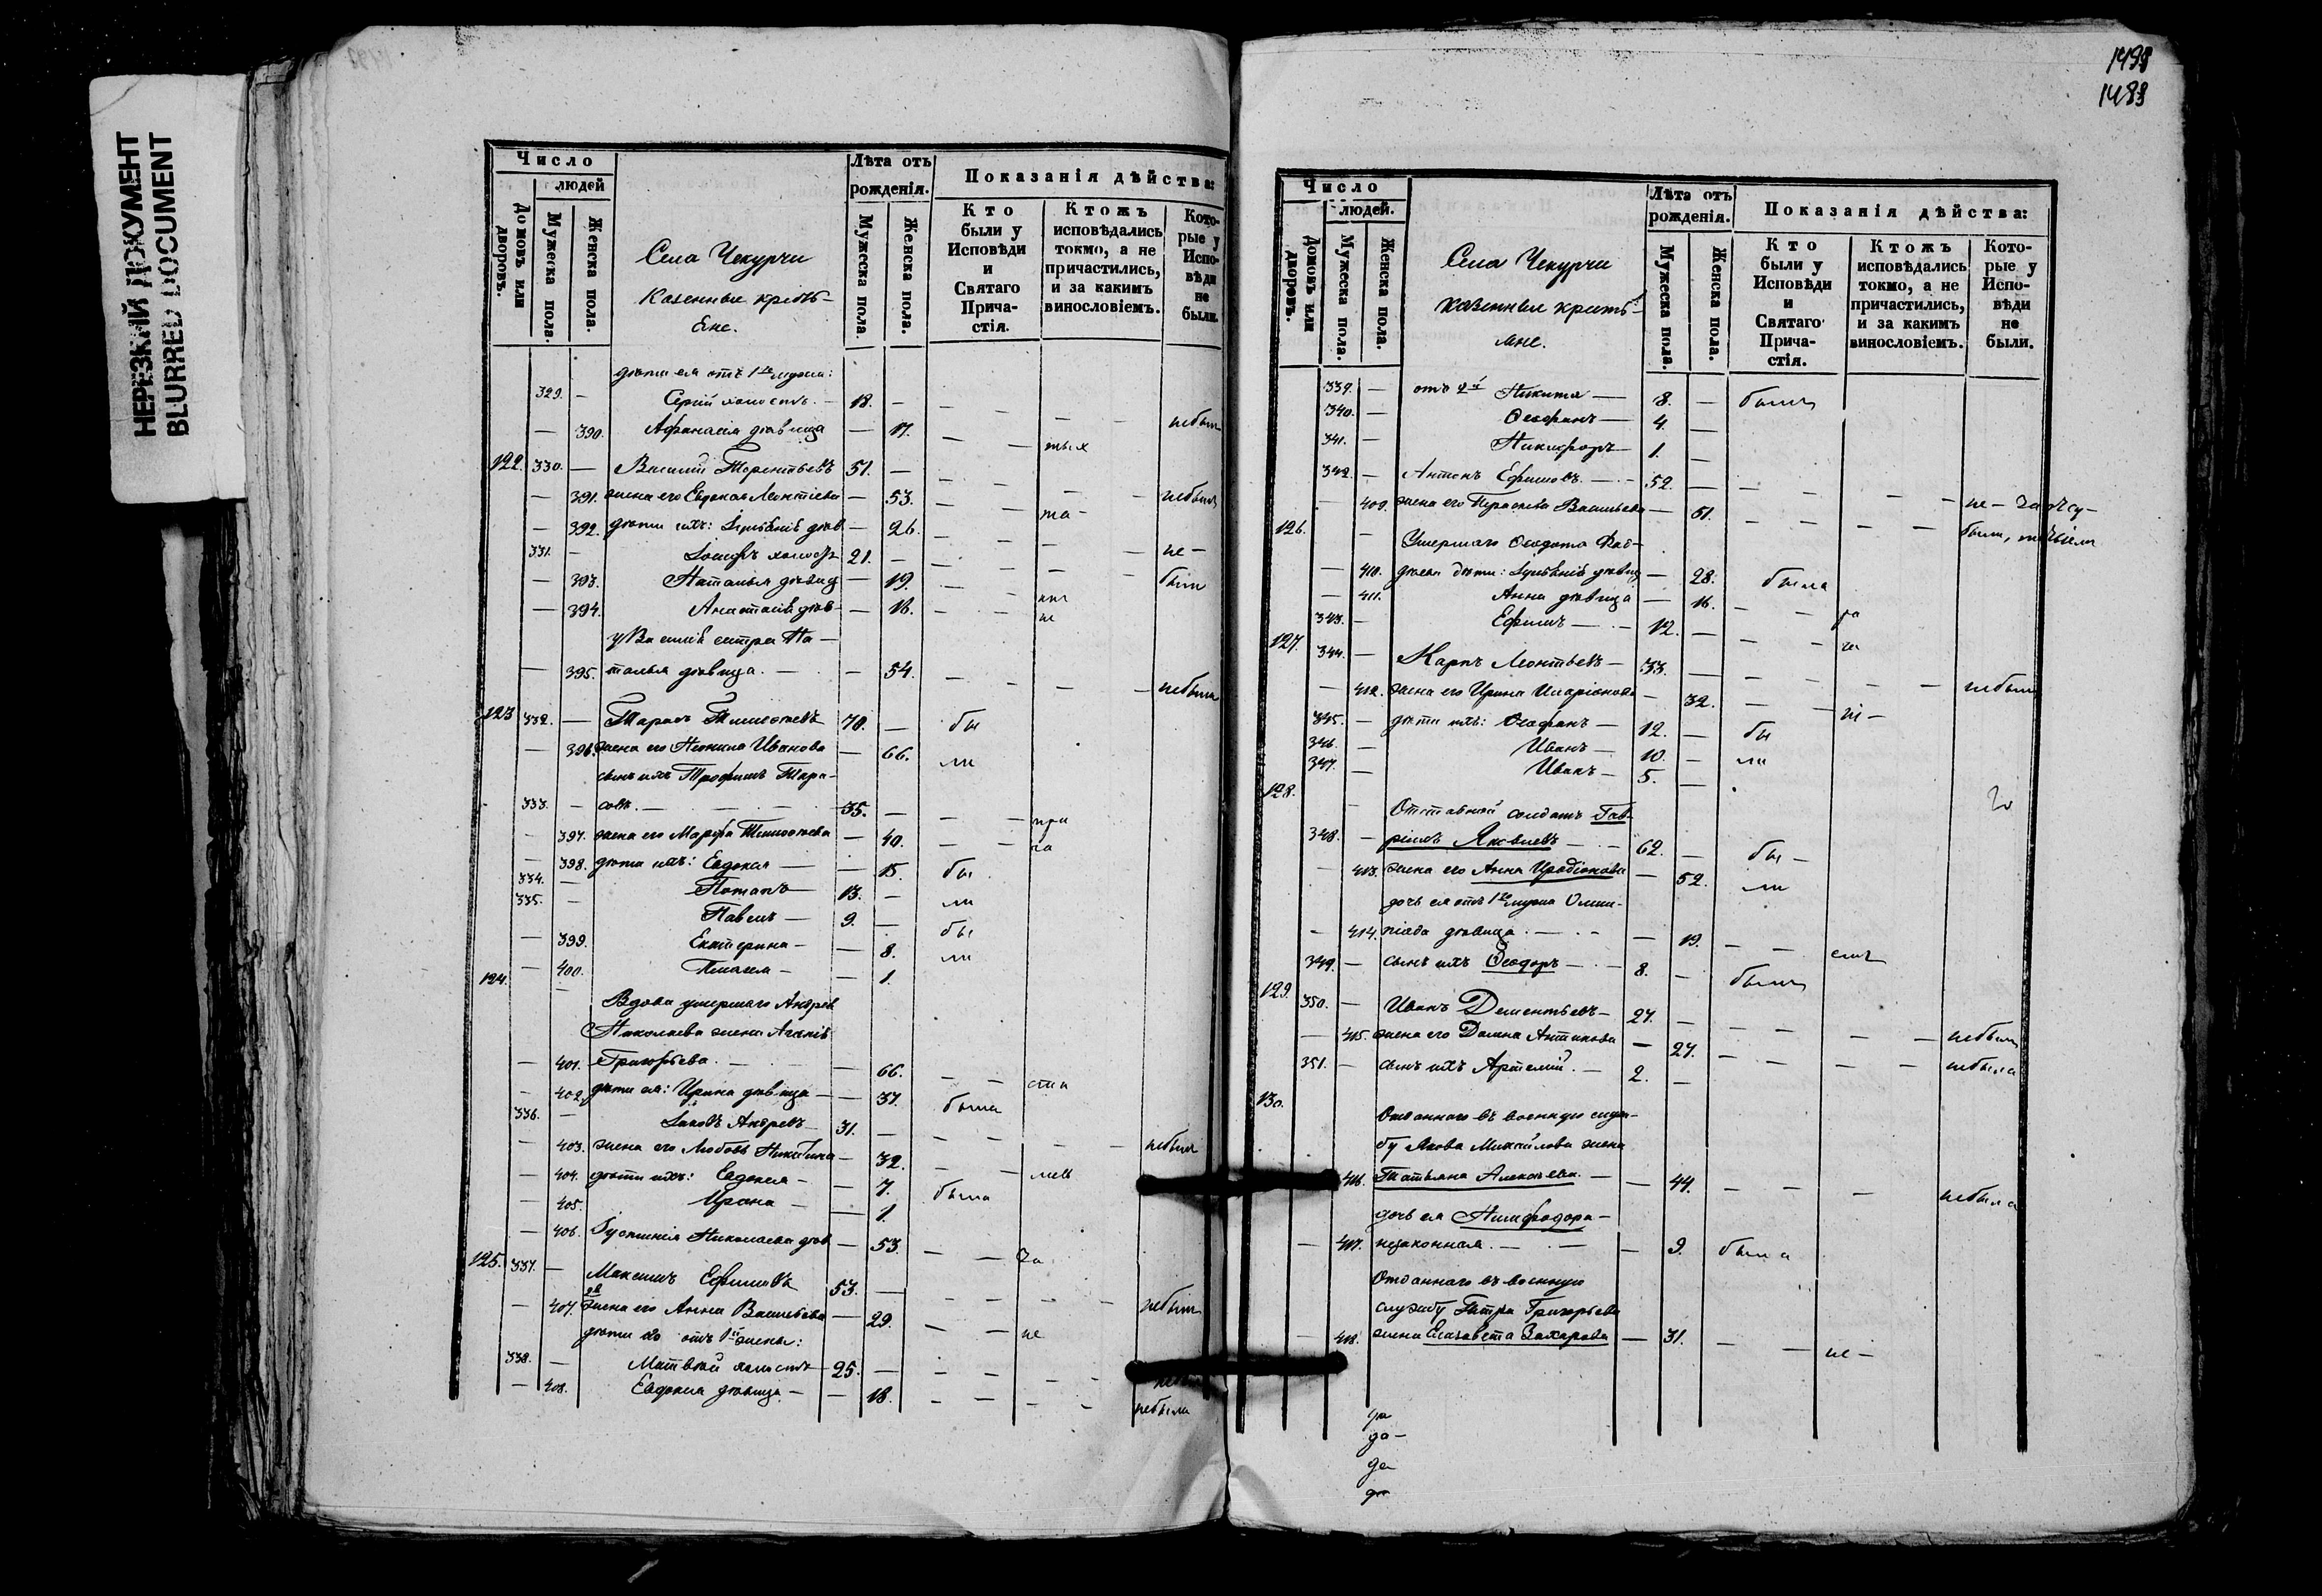 НЕРЕЗКИЙ ДОКУМЕНТ
BLURRED DOCUMENT
Число
людей
Домовъ или дворовъ.
Мужеска пола.
Женска пола.
Села Чекурчи
Казенные кресть-
яне.
Лѣта отъ рожденія.
Мужеска пола.
Женска пола.
Показанія дѣйства:
Кто были у Исповѣди и Святаго Прича-стія.
Ктожъ исповѣдались токмо, а не причастились, и за какимъ винословіемъ.
Кото-рые у Испо-вѣди не были.
дѣти ея отъ 1го мужа:
329. — Сергій холостъ. — 18. — небылъ
— 390. Афанасія дѣвица — 17.
122. 330. — Василій Терентьевъ 51. — небылъ
— 391. жена его Евдокія Леонтіева — 53.
— 392. дѣти ихъ: дѣв — 26.
331. — холост 21. — не-
— 393. Наталья дѣвиц — 19. были
— 394. Анастасія дѣв — 16.
у Василія сестра На-
— 395. талья дѣвица. — 54. небыла
123 332. — Тарасъ Тимофеевъ 70. — бы
— 396. жена его Неонила Иванова — 66. ли
сынъ ихъ Трофимъ Тара-
333. — совъ. — 35.
— 397. жена его Марфа Тимофеева — 40.
— 398. дѣти ихъ: Евдокія — 15. бы
334. — Потапъ — 13. — ли
335. — Павелъ — 9. — бы
— 399. Екатерина — 8. ли
— 400. Пелагея — 1.
124.
Вдова умершаго Андрея
Николаева жена
— 401. Григорьева. — 66.
— 402. дѣти ея: Ирина дѣвица — 37. была
336. — Андреевъ 31. — небылъ
— 403. жена его Любовь Никитина — 32.
— 404. дѣти ихъ: Евдокія — 7. была
— 405. Ирина — 1.
— 406. Іустинія Николаева дѣв — 53.
125. 337. — Максимъ Ефимовъ 53. — небылъ
— 407. жена его Анна Васильева — 29. не
дѣти его отъ 1й жены:
338. — Матвѣй холостъ 25. —
— 408. Евдокія дѣвица — 18. небыла
1498
1483
Число
людей.
Домовъ или дворовъ.
Мужеска пола.
Женска пола.
Села Чекурчи
казенные кресть-
яне.
Лѣта отъ рожденія.
Мужеска пола.
Женска пола.
Показанія дѣйства:
Кто были у Исповѣди и Святаго Прича-стія.
Ктожъ исповѣдались токмо, а не причастились, и за какимъ винословіемъ.
Кото-рые у Испо-вѣди не были.
339. — отъ 2й Никита — 8. — былъ
340. — Ѳеофанъ — 4. —
341. — Никифоръ — 1. —
342. — Антонъ Ефимовъ. — 52. — не-
— 409. жена его Параскева Васильева — 51. были,
126.
Умершаго Ѳеодота
— 410. дѣти: дѣвиц — 28. была
— 411. Анна дѣвица — 16.
343. — Ефимъ — 12. —
127. 344. — Карпъ Леонтьевъ — 33. — небылъ
— 412. жена его Ирина Иларіонова — 32.
345. — дѣти ихъ: Ѳеофанъ — 12. — бы
346. — Иванъ — 10. — ли
347. — Иванъ — 5. —
128.
Отставной солдатъ Гав-
348. — ріилъ Яковлевъ — 62. — бы-
— 413. жена его Анна Иродіонова — 52. ли
дочь ея отъ 1го мужа Олим-
— 414. піада дѣвица. — 19.
349. — сынъ ихъ Ѳеодоръ — 8. — былъ
129. 350. — Иванъ Дементьевъ — 27. — небылъ
— 415. жена его Домна Антипова — 27. небыла
351. — сынъ ихъ Артемій. — 2. —
130.
Отданнаго въ военную служ-
бу Якова Михайлова жена
416. Татьяна Алексѣева. — 44. небыла
дочь ея Нимфодора —
— 417. незаконная. — 9. была
Отданнаго въ военную
службу Петра Григорьева
— 418. жена Елизавета Захарова — 31. не-